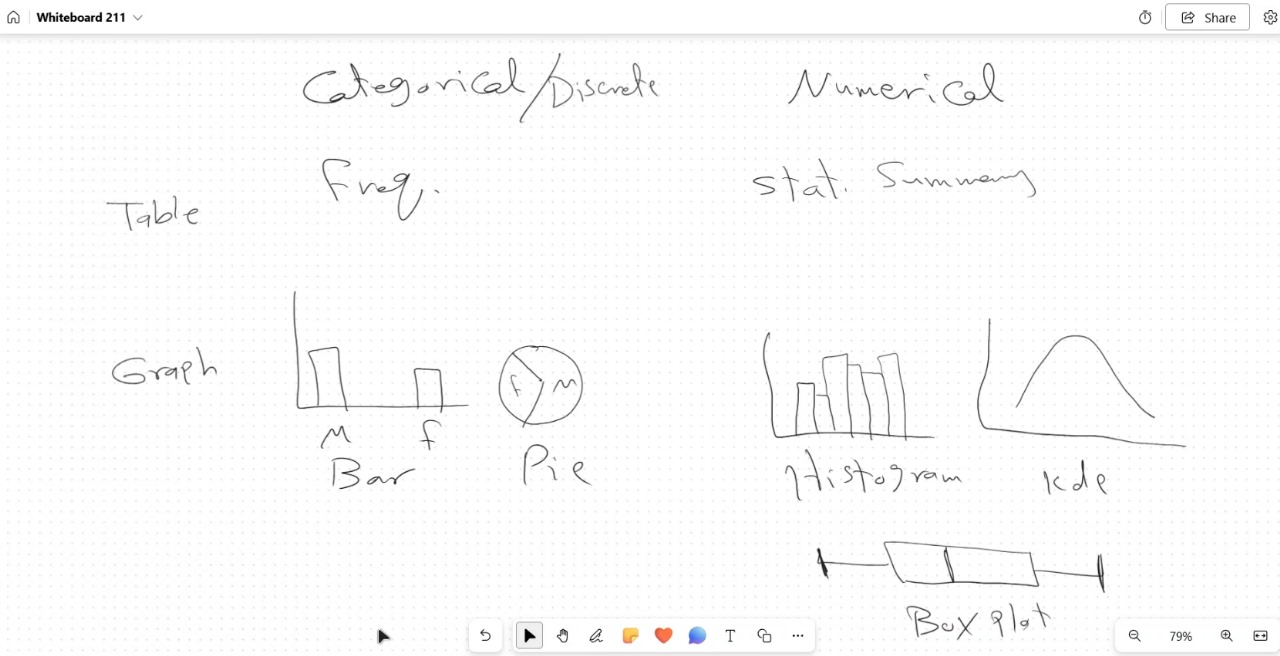 Whiteboard 211
Share
Categorical/Discrete
Numerical
Freq.
Stat. Summary
Table
Graph
f M
M f
Bar
Pie
Histogram
kde
Box plot
T
79%